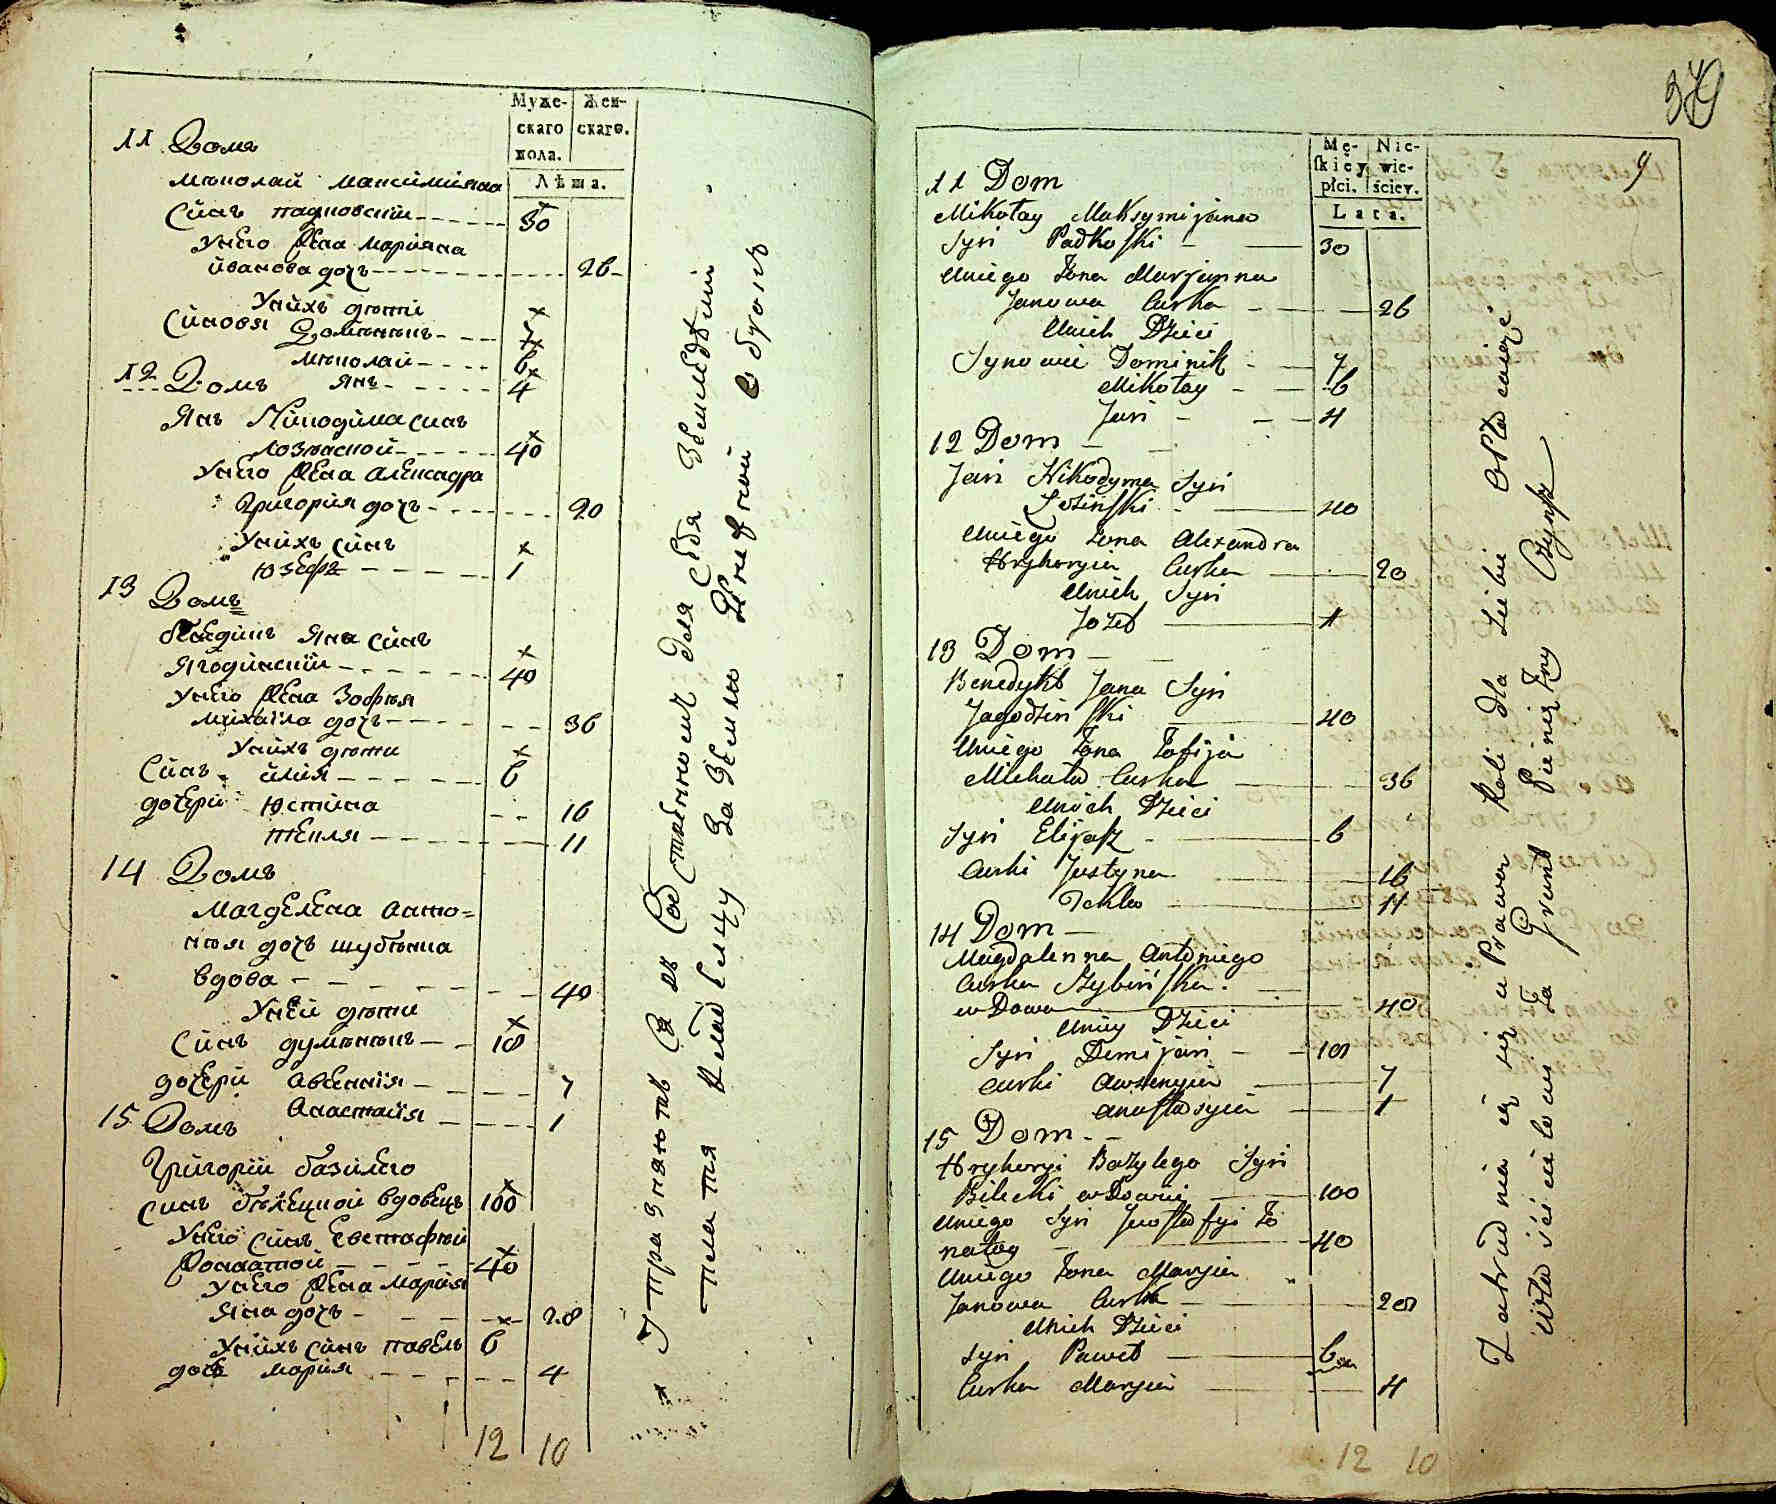 Муже-
скаго
пола.
Жен-
скаго.
Лѣта.
11 Домъ
Миколай Максимияна
Синъ падковский 30
Унего жена Марияна
иванова дочь 26
Унихъ дѣти
Синовя Доминикъ 7
Миколай 6
Янъ 4
12 Домъ
Янъ Никодима синъ
Лозинской 40
Унего жена Александра
Григория дочь 20
Унихъ синъ
Юзефъ 1
13 Домъ
Яна синъ
Ягодинский 40
Унего жена Зофия
Михайла дочь 36
Унихъ дѣти
Синъ илия 6
дочери Юстина 16
текля 11
14 Домъ
Магделена Анто=
ния дочь шубинка
вдова 40
Уней дѣти
Синъ 10
дочери Авсения 7
Анастасия 1
15 Домъ
Григорий базилего
синъ билецкой вдовецъ 100
Унего Синъ Евстафий
Жонатой 40
Унего жена Мария
Яна дочь 28
Унихъ синъ павелъ 6
дочь мария 4
12 10
Упражняются въ Собственномъ для себя Земледѣлии
платятъ Владелцу за Землю Денежной оброкъ
Mę-
ſkiey
płci.
Nie-
wie-
ściey.
Lata.
9
11 Dom
Mikołay Maksymijana
Syn Padkoſki 30
Uniego Żona Marjanna
Janowa Curka 26
Unich Dzieci
Synowie Dominik 7
Mikołay 6
Jan 4
12 Dom
Jan Nikodyma Syn
Łoźinſki 40
Uniego Żona Alexandra
Hryhoryia Curka 20
Unich Syn
Jozef 1
13 Dom
Benedykt Jana Syn
Jagodzinſki 40
Uniego Żona Zofija
Michała Curka 36
Unich Dzieci
Syn Elijaſz 6
Curki Justyna 16
Tekla 11
14 Dom
Magdalenna Antoniego
Curka Szybinſka
wDowa 40
Uniey Dzieci
Syn Demijan 10
Curki Awxenyia 7
Anaſtasyia 1
15 Dom
Hryhoryi Bazylego Syn
Bilecki wDowiec 100
Uniego Syn Jewſtafyi Żo
naty 40
Uniego Żona Maryia
Janowa Curka 28
Unich Dzieci
Syn Paweł 6
Curka Maryia 4
12 10
Zatrudnia ią się uPrawą Roli dla siebie opłacaiąc
Właścicielowi Za Grunt Pieniężny Czynſz